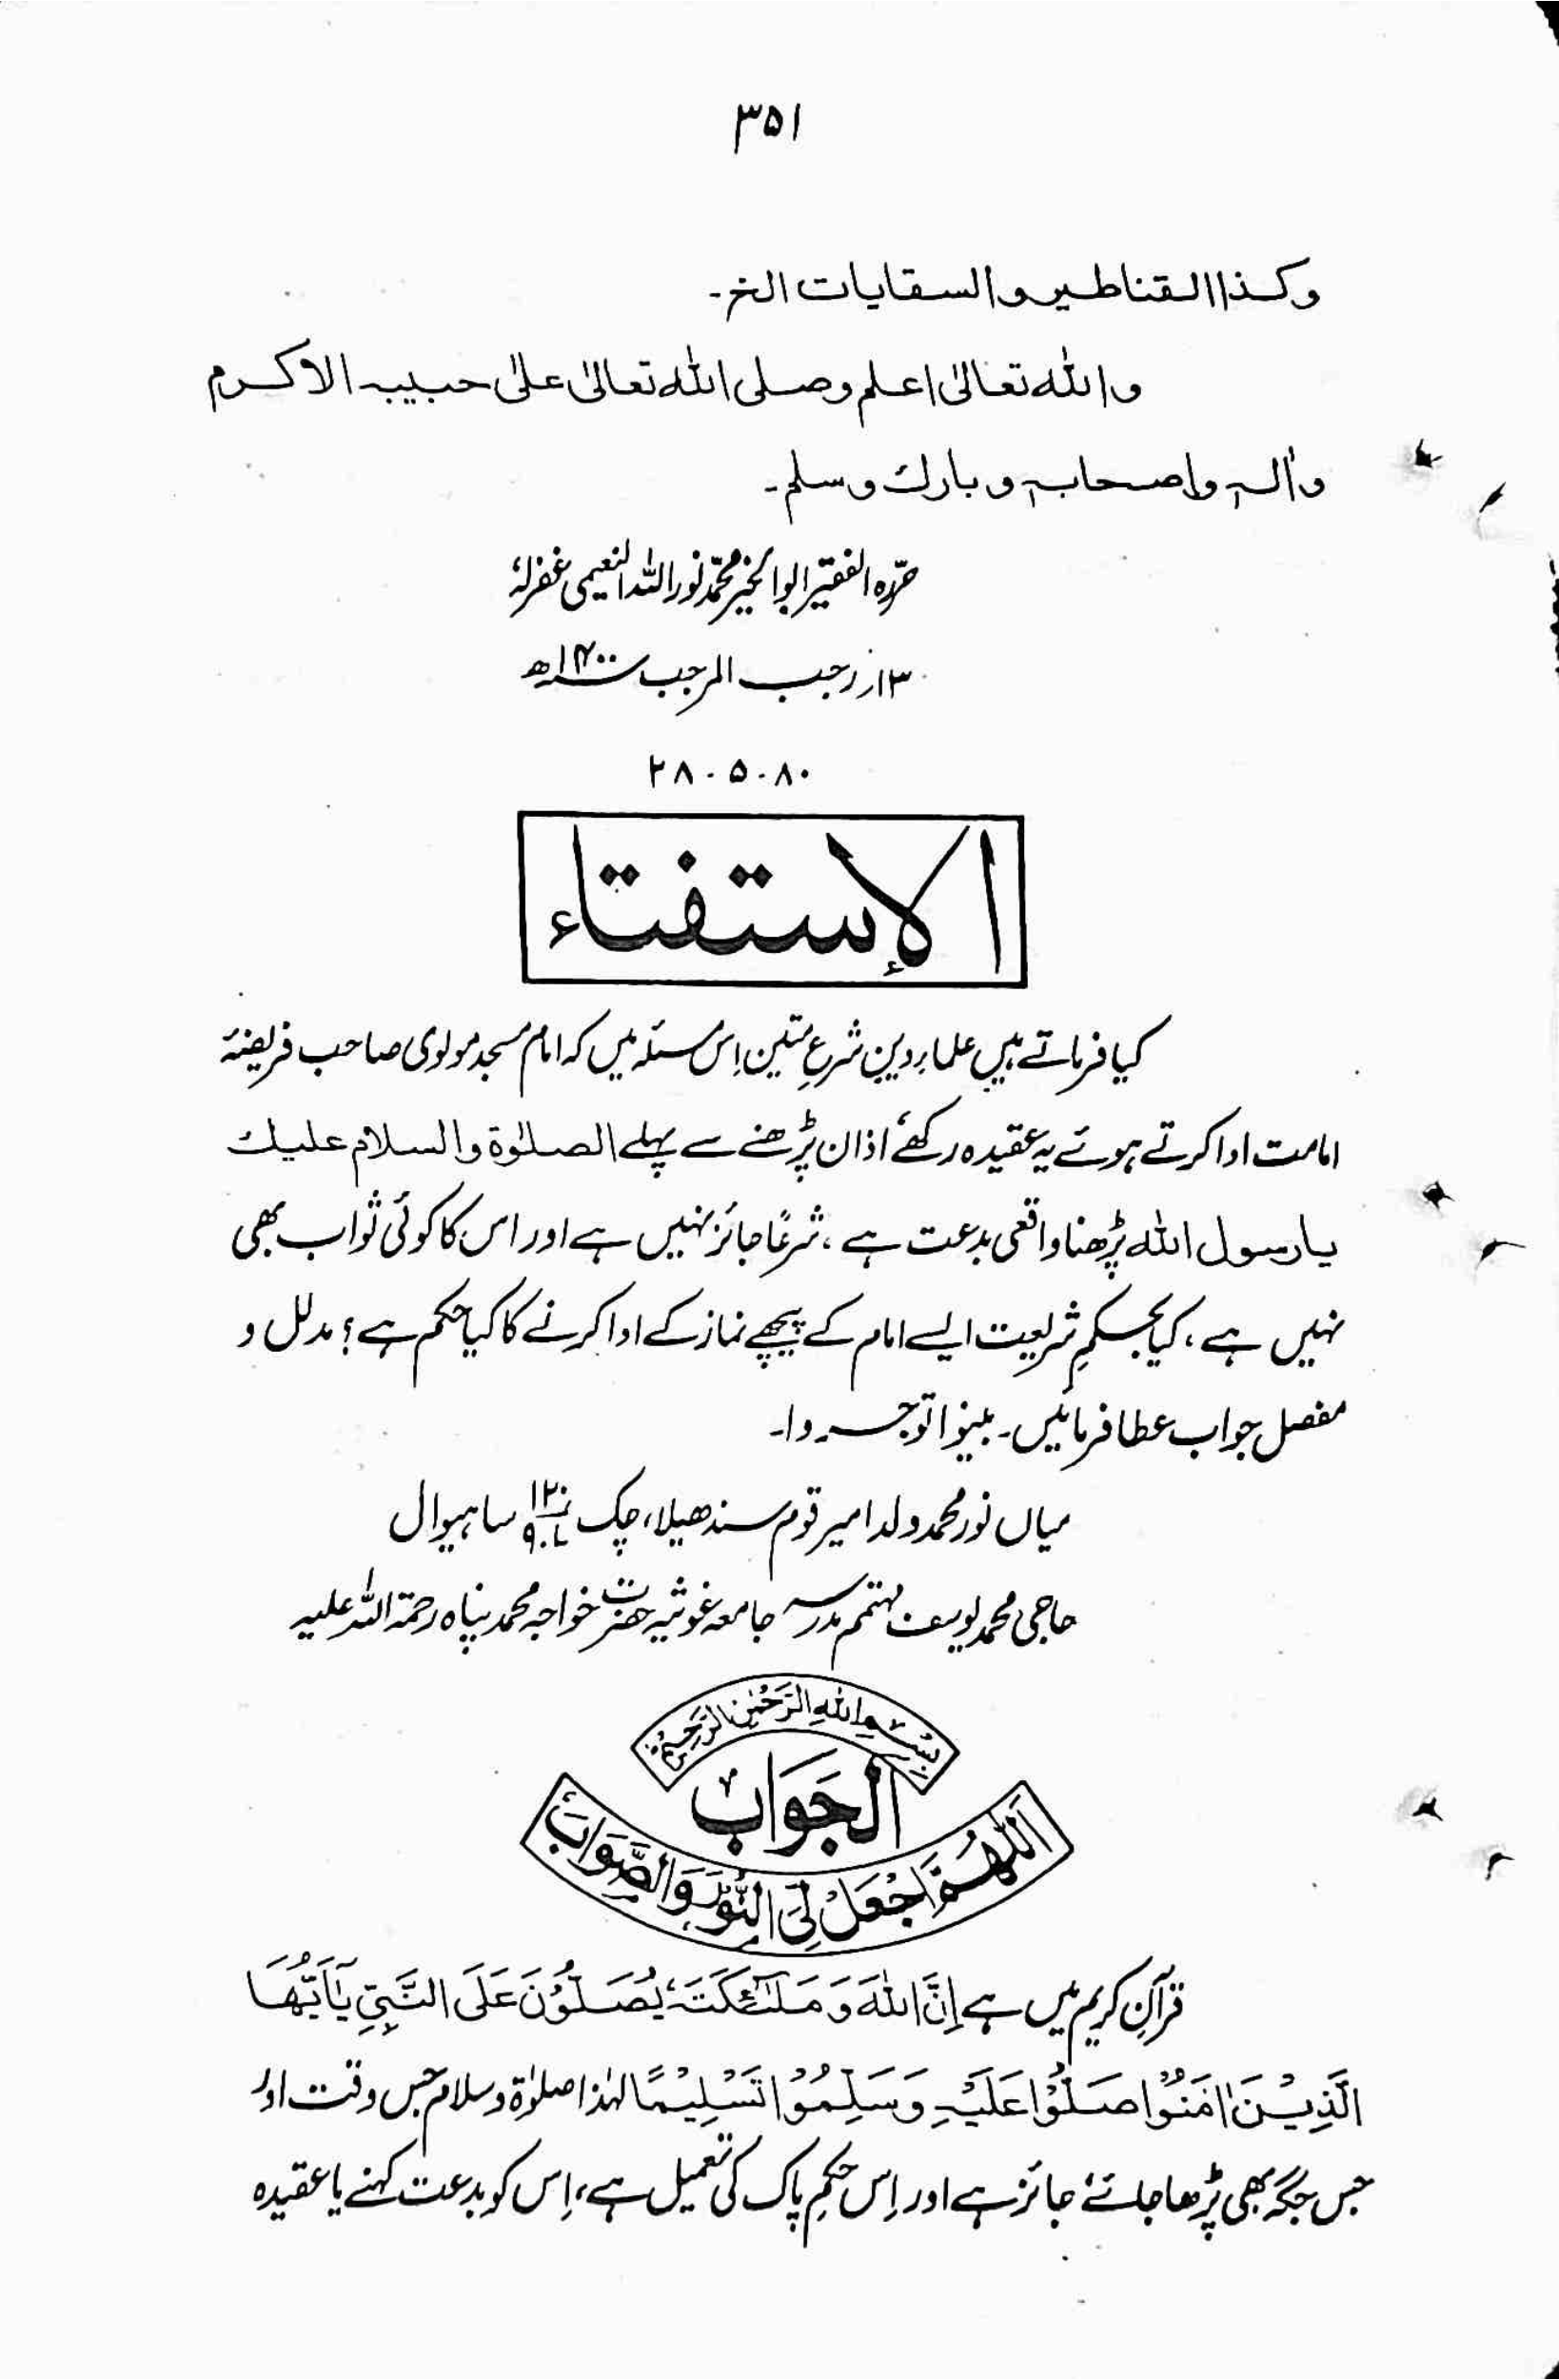 ۳۵۱
وکذا القناطیر والسقایات الخ۔
واللہ تعالیٰ اعلم وصلی اللہ تعالیٰ علیٰ حبیبہ الاکرم
واٰلہ واصحابہ وبارك وسلم۔
حرّرہ الفقیر ابوالخیر محمّد نور اللہ النعیمی غفرلہٗ
۱۳؍ رجب المرجب ۱۴۰۰ھ
۲۸.۵.۸۰
الإستفتاء
کیا فرماتے ہیں علماءِ دین شرعِ متین اِس مسئلہ میں کہ امام مسجد مولوی صاحب فریضۂ
امامت ادا کرتے ہوئے یہ عقیدہ رکھے، اذان پڑھنے سے پہلے الصلوٰۃ والسلام علیك
یا رسول اللہ پڑھنا واقعی بدعت ہے، شرعًا جائز نہیں ہے اور اس کا کوئی ثواب بھی
نہیں ہے، کیا بحکمِ شریعت ایسے امام کے پیچھے نماز کے ادا کرنے کا کیا حکم ہے؟ مدلل و
مفصل جواب عطا فرمائیں۔ بینوا توجروا۔
میاں نور محمد ولد امیر قوم سندھیلا، چک ساہیوال
حاجی محمد یوسف مہتمم مدرسہ جامعہ غوثیہ حضرت خواجہ محمد پناہ رحمۃ اللہ علیہ
بِسْمِ اللہِ الرَّحْمٰنِ الرَّحِیْمِ
اَلجَوَابُ
اَللّٰھُمَّ اجْعَلْ لِیَ النُّوْرَ وَالصَّوَابَ
قرآنِ کریم میں ہے اِنَّ اللہَ وَمَلٰٓئِکَتَہٗ یُصَلُّوْنَ عَلَی النَّبِیِّ یٰٓاَیُّھَا
الَّذِیْنَ اٰمَنُوْا صَلُّوْا عَلَیْہِ وَسَلِّمُوْا تَسْلِیْمًا لہٰذا صلوٰۃ وسلام جس وقت اور
جس جگہ بھی پڑھا جائے جائز ہے اور اِس حکمِ پاک کی تعمیل ہے، اِس کو بدعت کہنے یا عقیدہ